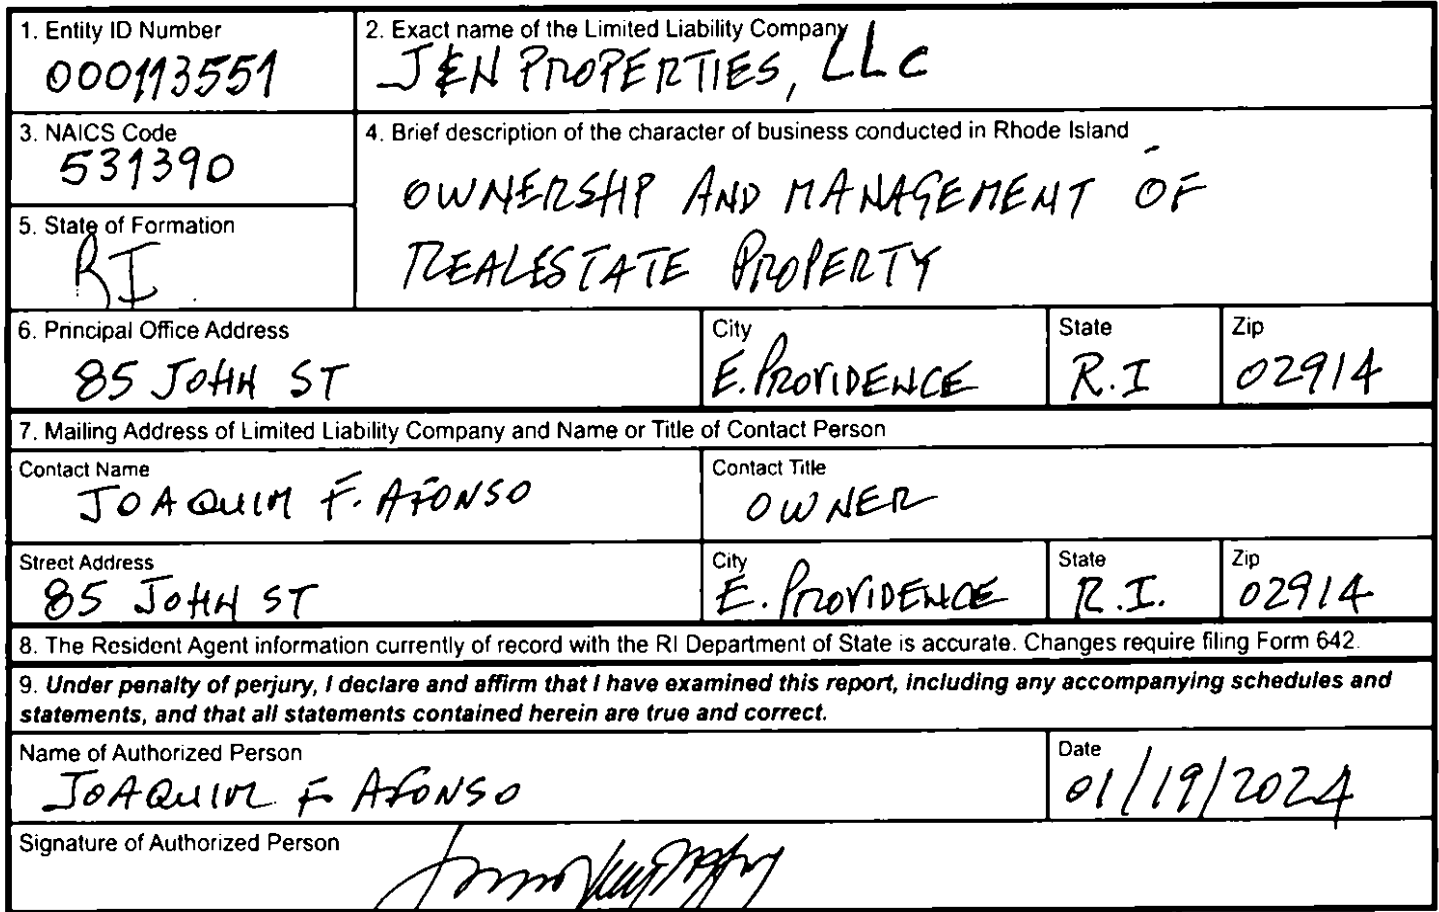 1. Entity ID Number
000113551
2. Exact name of the Limited Liability Company
J&N PROPERTIES, LLC
3. NAICS Code
531390
4. Brief description of the character of business conducted in Rhode Island
OWNERSHP AND MANAGEMENT OF
REALESTATE PROPERTY
5. State of Formation
RI
6. Principal Office Address
85 JOHN ST
City
E. PROVIDENCE
State
R.I
Zip
02914
7. Mailing Address of Limited Liability Company and Name or Title of Contact Person
Contact Name
JOAQUIM F. AFONSO
Contact Title
OWNER
Street Address
85 JOHN ST
City
E. PROVIDENCE
State
R.I.
Zip
02914
8. The Resident Agent information currently of record with the RI Department of State is accurate. Changes require filing Form 642.
9. Under penalty of perjury, I declare and affirm that I have examined this report, including any accompanying schedules and
statements, and that all statements contained herein are true and correct.
Name of Authorized Person
JOAQUIM F AFONSO
Date
01/19/2024
Signature of Authorized Person